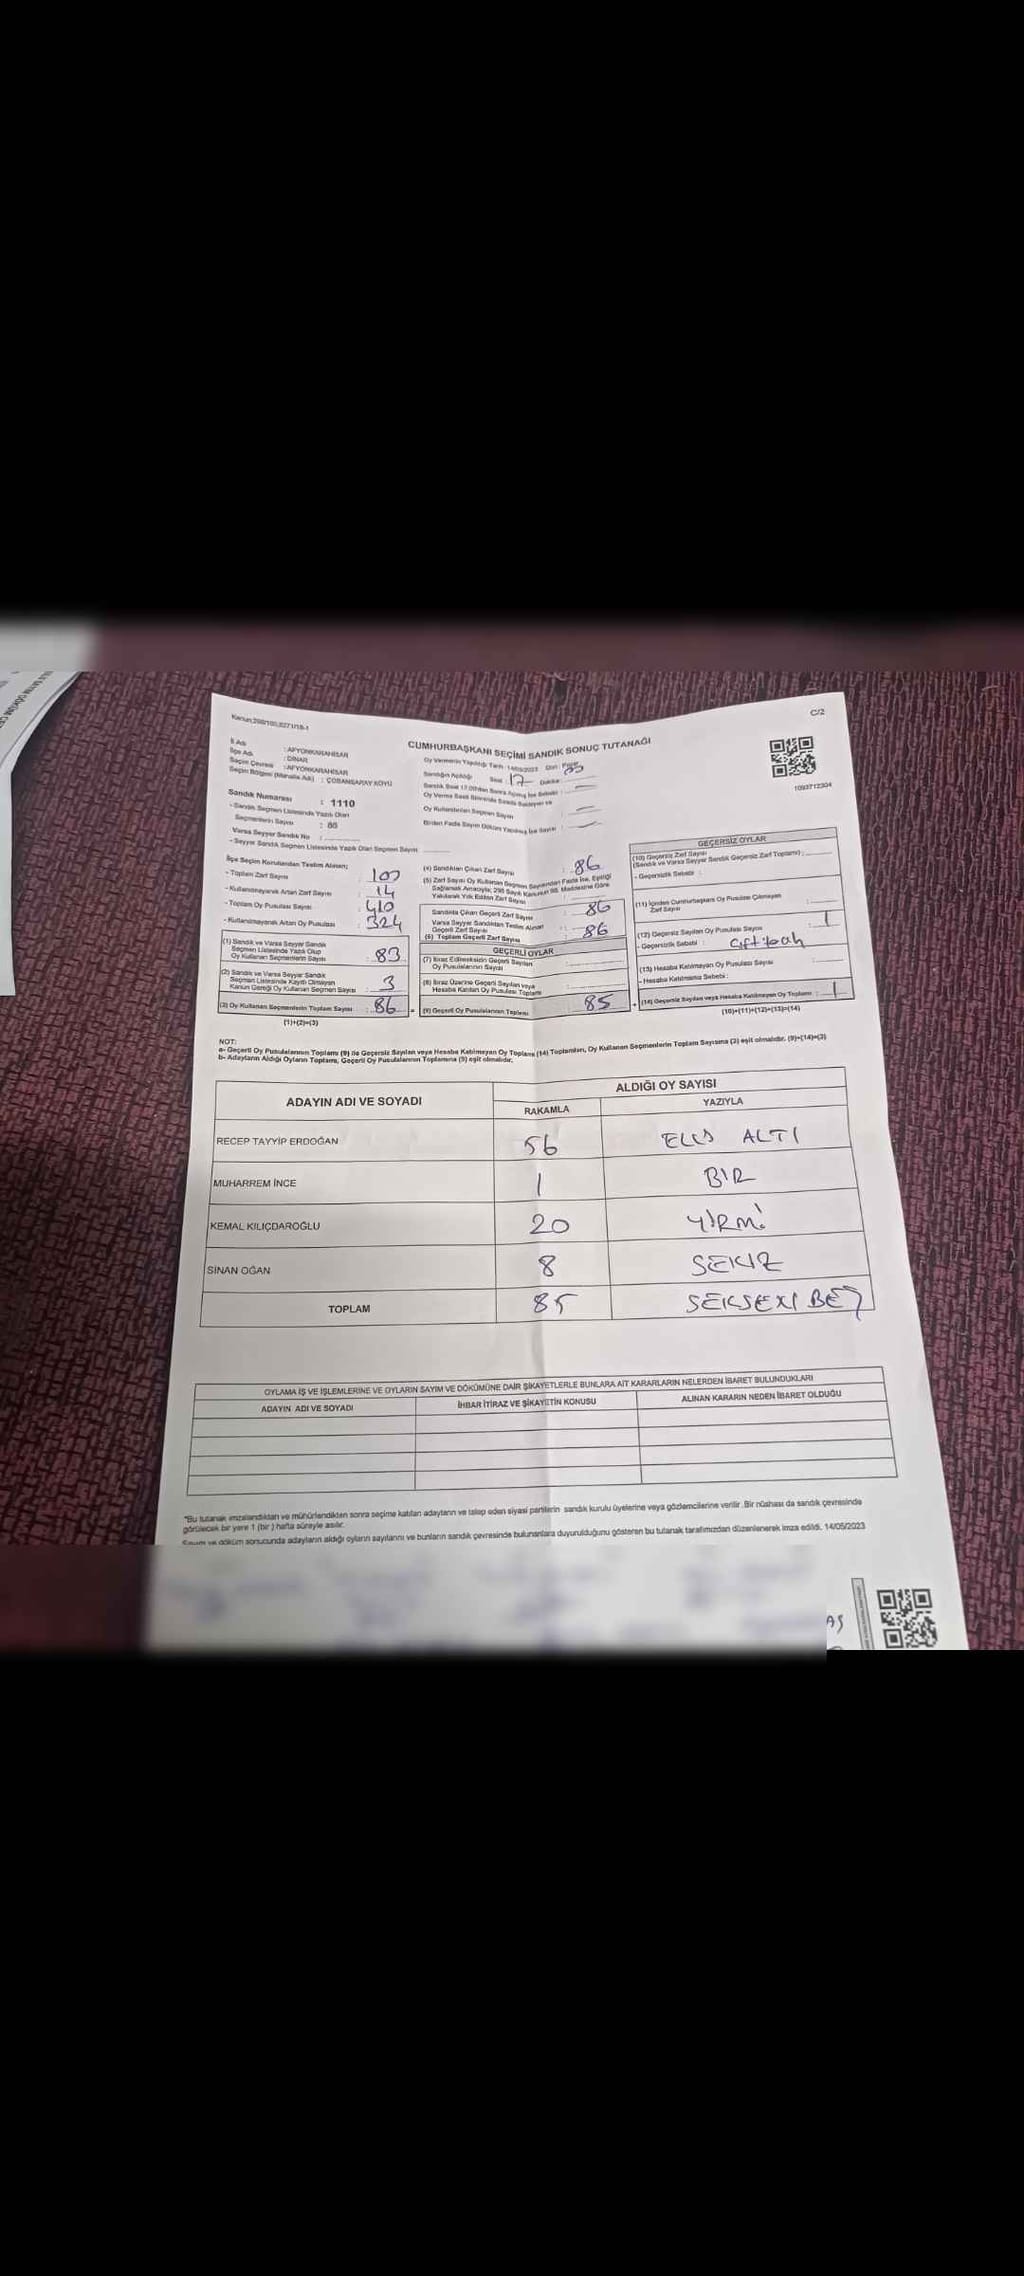 Kanun;298/105,6271/18-1
C/2
CUMHURBAŞKANI SEÇİMİ SANDIK SONUÇ TUTANAĞI
İl Adı : AFYONKARAHİSAR
İlçe Adı : DİNAR
Seçim Çevresi : AFYONKARAHİSAR
Seçim Bölgesi (Mahalle Adı) : ÇOBANSARAY KÖYÜ
Oy Vermenin Yapıldığı Tarih :14/05/2023 Gün : Pazar
Sandığın Açıldığı Saat 17 Dakika:
Oy Kullandırılan Seçmen Sayısı :
Birden Fazla Sayım Döküm Yapılmış İse Sayısı :
1093712304
Sandık Numarası : 1110
- Sandık Seçmen Listesinde Yazılı Olan
Seçmenlerin Sayısı : 86
Varsa Seyyar Sandık No :
- Seyyar Sandık Seçmen Listesinde Yazılı Olan Seçmen Sayısı
İlçe Seçim Kurulundan Teslim Alınan;
- Toplam Zarf Sayısı :
- Kullanılmayarak Artan Zarf Sayısı : 14
- Toplam Oy Pusulası Sayısı : 410
- Kullanılmayarak Artan Oy Pusulası : 324
(1) Sandık ve Varsa Seyyar Sandık
Seçmen Listesinde Yazılı Olup
Oy Kullanan Seçmenlerin Sayısı : 83
(2) Sandık ve Varsa Seyyar Sandık
Seçmen Listesinde Kayıtlı Olmayan
Kanun Gereği Oy Kullanan Seçmen Sayısı : 3
(3) Oy Kullanan Seçmenlerin Toplam Sayısı : 86
(1)+(2)=(3)
(4) Sandıktan Çıkan Zarf Sayısı : 86
(5) Zarf Sayısı Oy Kullanan Seçmen Sayısından Fazla İse, Eşitliği
Sağlamak Amacıyla; 298 Sayılı Kanunun 98. Maddesine Göre
Yakılarak Yok Edilen Zarf Sayısı :
Sandıkta Çıkan Geçerli Zarf Sayısı : 86
Varsa Seyyar Sandıktan Teslim Alınan
Geçerli Zarf Sayısı :
(6) Toplam Geçerli Zarf Sayısı : 86
GEÇERLİ OYLAR
(7) İtiraz Edilmeksizin Geçerli Sayılan
Oy Pusulalarının Sayısı :
(8) İtiraz Üzerine Geçerli Sayılan veya
Hesaba Katılan Oy Pusulası Toplamı :
(9) Geçerli Oy Pusulalarının Toplamı : 85
GEÇERSİZ OYLAR
(10) Geçersiz Zarf Sayısı
(Sandık ve Varsa Seyyar Sandık Geçersiz Zarf Toplamı) :
- Geçersizlik Sebebi :
(11) İçinden Cumhurbaşkanı Oy Pusulası Çıkmayan
Zarf Sayısı :
(12) Geçersiz Sayılan Oy Pusulası Sayısı : 1
- Geçersizlik Sebebi :
(13) Hesaba Katılmayan Oy Pusulası Sayısı :
- Hesaba Katılmama Sebebi :
(14) Geçersiz Sayılan veya Hesaba Katılmayan Oy Toplamı : 1
(10)+(11)+(12)+(13)=(14)
NOT:
a- Geçerli Oy Pusulalarının Toplamı (9) ile Geçersiz Sayılan veya Hesaba Katılmayan Oy Toplamı (14) Toplamları, Oy Kullanan Seçmenlerin Toplam Sayısına (3) eşit olmalıdır. (9)+(14)=(3)
b- Adayların Aldığı Oyların Toplamı, Geçerli Oy Pusulalarının Toplamına (9) eşit olmalıdır.
ADAYIN ADI VE SOYADI ALDIĞI OY SAYISI
RAKAMLA YAZIYLA
RECEP TAYYİP ERDOĞAN 56 ELLİ ALTI
MUHARREM İNCE 1 BİR
KEMAL KILIÇDAROĞLU 20 YİRMİ
SİNAN OĞAN 8 SEKİZ
TOPLAM 85 SEKSEN BEŞ
OYLAMA İŞ VE İŞLEMLERİNE VE OYLARIN SAYIM VE DÖKÜMÜNE DAİR ŞİKAYETLERLE BUNLARA AİT KARARLARIN NELERDEN İBARET BULUNDUKLARI
ADAYIN ADI VE SOYADI İHBAR İTİRAZ VE ŞİKAYETİN KONUSU ALINAN KARARIN NEDEN İBARET OLDUĞU
*Bu tutanak imzalandıktan ve mühürlendikten sonra seçime katılan adayların ve talep eden siyasi partilerin sandık kurulu üyelerine veya gözlemcilerine verilir. Bir nüshası da sandık çevresinde
görülecek bir yere 1 (bir) hafta süreyle asılır.
Sayım ve döküm sonucunda adayların aldığı oyların sayılarını ve bunların sandık çevresinde bulunanlara duyurulduğunu gösteren bu tutanak tarafımızdan düzenlenerek imza edildi. 14/05/2023
AŞ